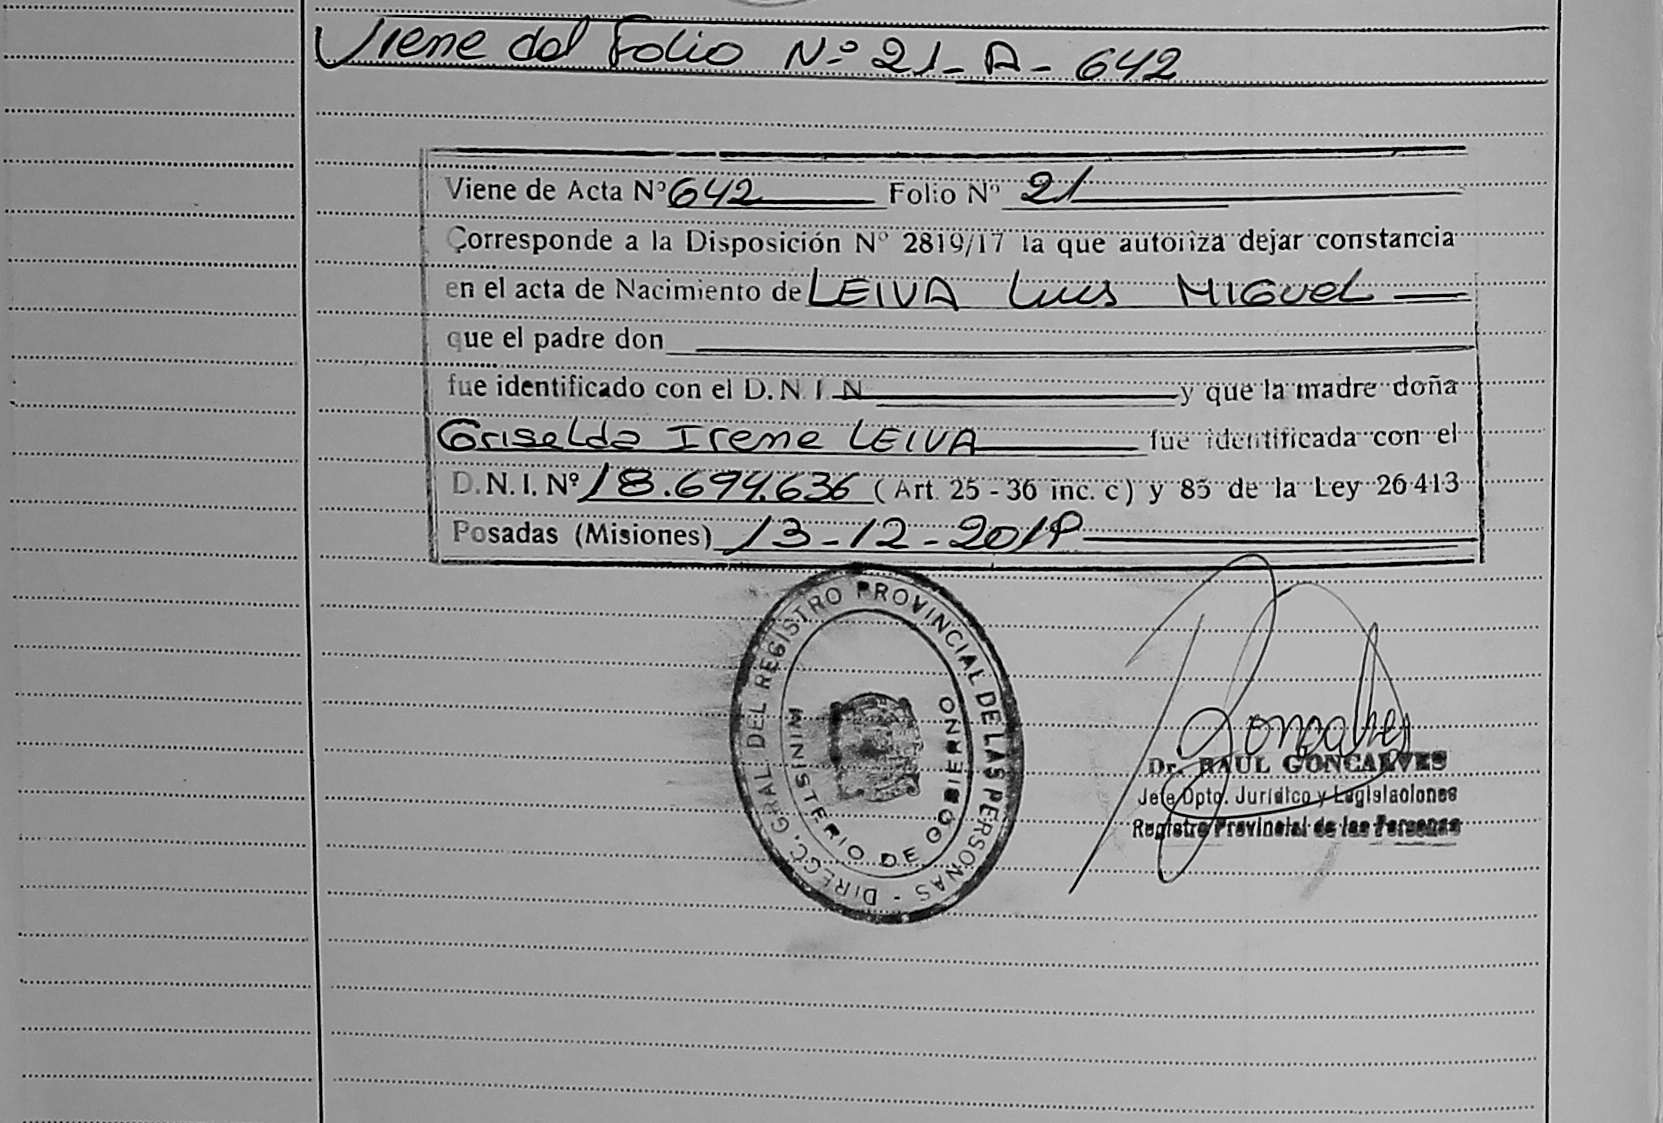 Viene del Folio Nº 21_ A - 642
Viene de Acta Nº 642 Folio Nº 21
Corresponde a la Disposición Nº 2819/17 la que autoriza dejar constancia
en el acta de Nacimiento de LEIVA Luis MIGUEL
que el padre don
fue identificado con el D.N.I.N y que la madre doña
Griselda Irene LEIVA fue identificada con el
D.N.I. Nº 18.694.636 (Art. 25 - 36 inc. c) y 85 de la Ley 26413
Posadas (Misiones) 13-12-2018
DIRECC. GRAL. DEL REGISTRO PROVINCIAL DE LAS PERSONAS -
MINISTERIO DE GOBIERNO
Goncalves
Dr. RAUL GONCALVES
Jefe Dpto. Jurídico y Legislaciones
Registro Provincial de las Personas